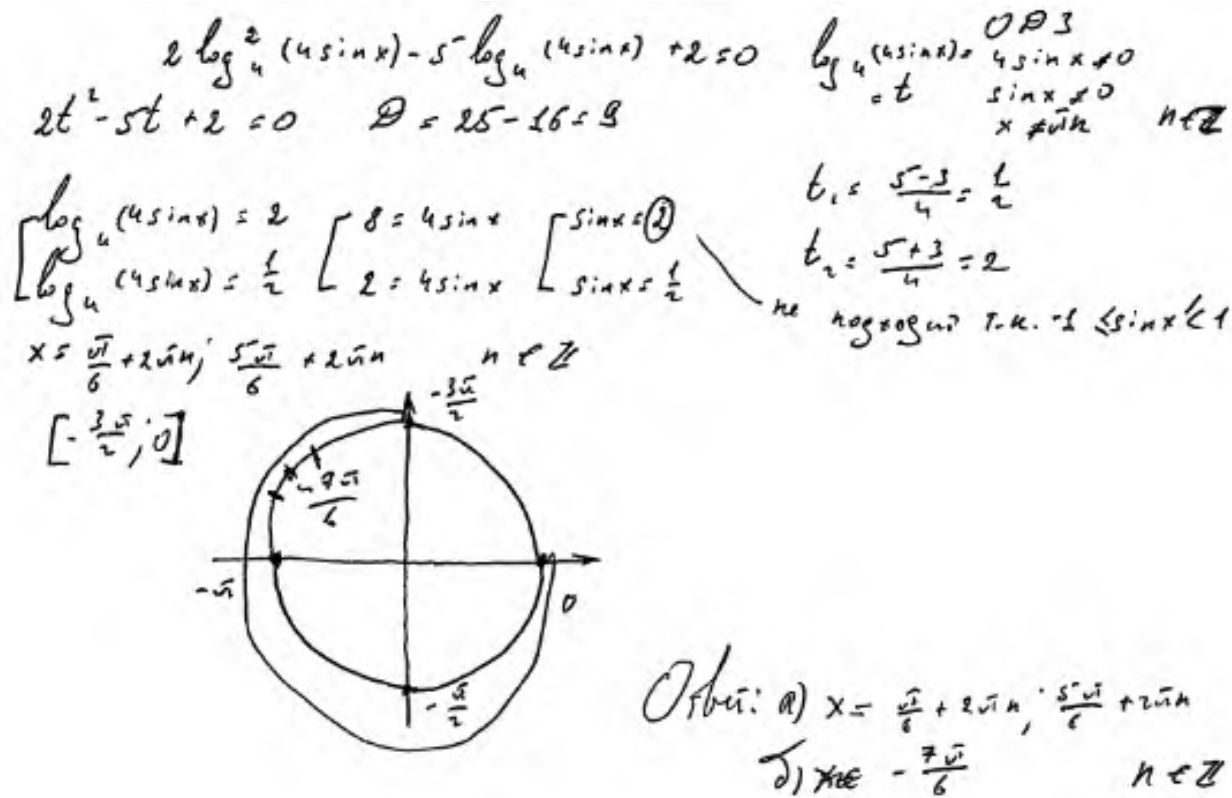 2 log₄² (4sinx) - 5 log₄ (4sinx) + 2 = 0
log₄ (4sinx) = t
ОДЗ
4sinx ≠ 0
sinx ≠ 0
x ≠ πn n ∈ Z
2t² - 5t + 2 = 0 D = 25 - 16 = 9
t₁ = (5-3)/4 = 1/2
t₂ = (5+3)/4 = 2
[ log₄ (4sinx) = 2 [ 8 = 4sinx [ sinx = 2
log₄ (4sinx) = 1/2 2 = 4sinx sinx = 1/2
не подходит т.к. -1 ≤ sinx ≤ 1
x = π/6 + 2πn; 5π/6 + 2πn n ∈ Z
[-3π/2; 0]
-3π/2
-7π/6
-π
0
-π/2
Ответ: а) x = π/6 + 2πn; 5π/6 + 2πn
б) -7π/6 n ∈ Z